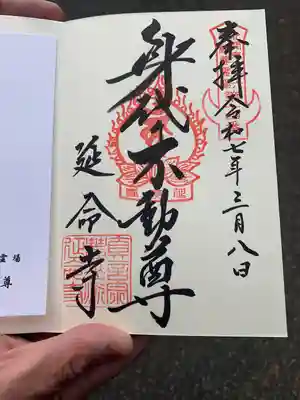 奉拝 令和七年三月八日
身代り不動尊
延命寺
霊場
尊